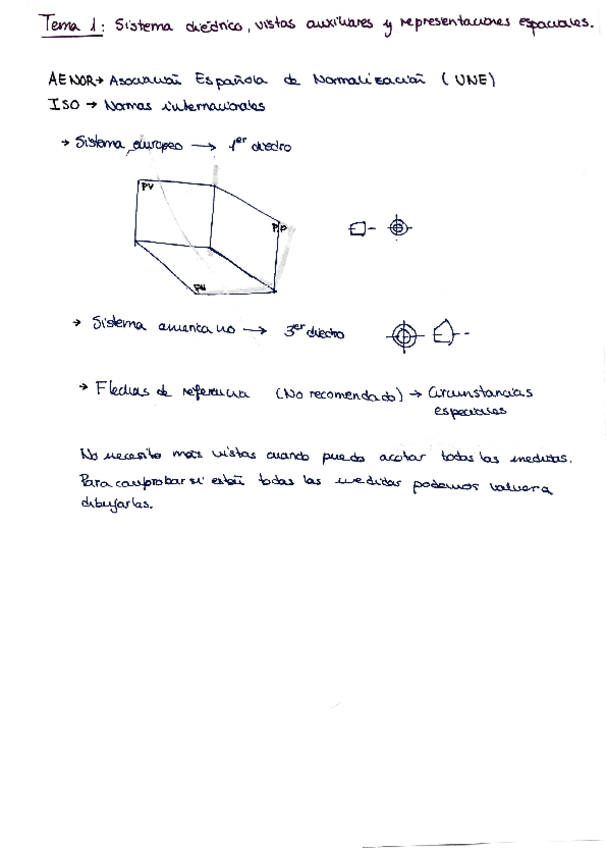 Tema 1: Sistema diédrico, vistas auxiliares y representaciones espaciales.
AENOR→ Asociación Española de Normalización (UNE)
ISO → Normas internacionales
→ Sistema europeo → 1er diedro
PV
PP
PH
→ Sistema americano → 3er diedro
→ Flechas de referencia (No recomendado) → Circunstancias
especiales
No necesito más vistas cuando puedo acotar todas las medidas.
Para comprobar si están todas las medidas podemos volver a
dibujarlas.